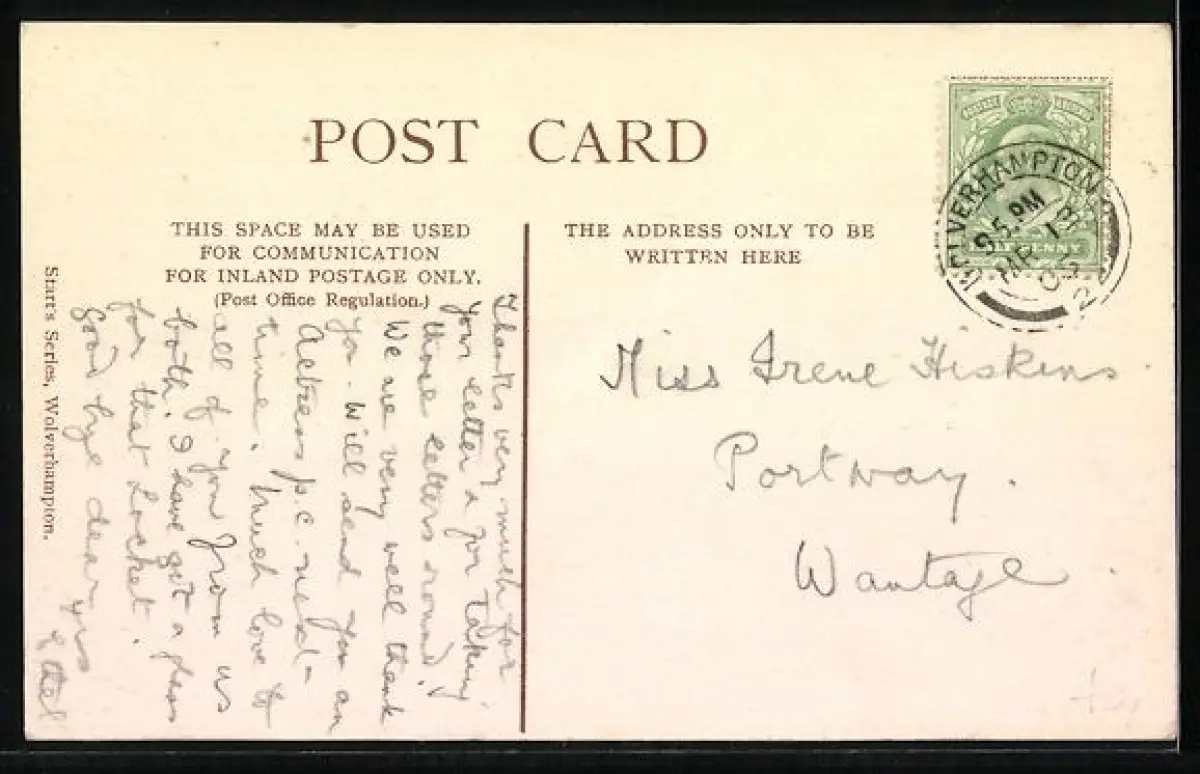 POST CARD
THIS SPACE MAY BE USED
FOR COMMUNICATION
FOR INLAND POSTAGE ONLY.
(Post Office Regulation.)
THE ADDRESS ONLY TO BE
WRITTEN HERE
WOLVERHAMPTON
PM
MR 13
05
2
HALF PENNY
Miss Irene Hiskins.
Portway.
Wantage.
Thanks very much for
your letter & for taking
those letters round.
We are very well thank
you. Will send you an
Actress p.c. next
time. Much love to
all of you from us
both. I have got a glass
for that Locket.
Good bye dear yrs
Ethel
Start's Series, Wolverhampton.